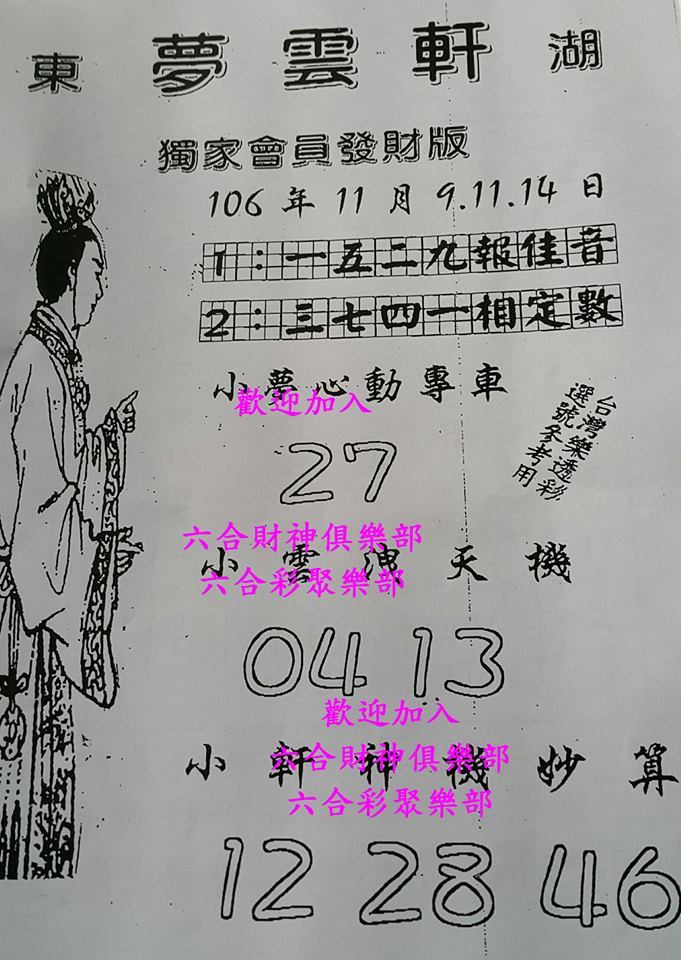 東 夢雲軒 湖
獨家會員發財版
106年11月9.11.14日
1:一五二九報佳音
2:三七四一相定數
小夢心動專車
歡迎加入
台灣樂透彩
選號參考用
27
六合財神俱樂部
小雲洩天機
六合彩聚樂部
04 13
歡迎加入
六合財神俱樂部
小軒神機妙算
六合彩聚樂部
12 28 46